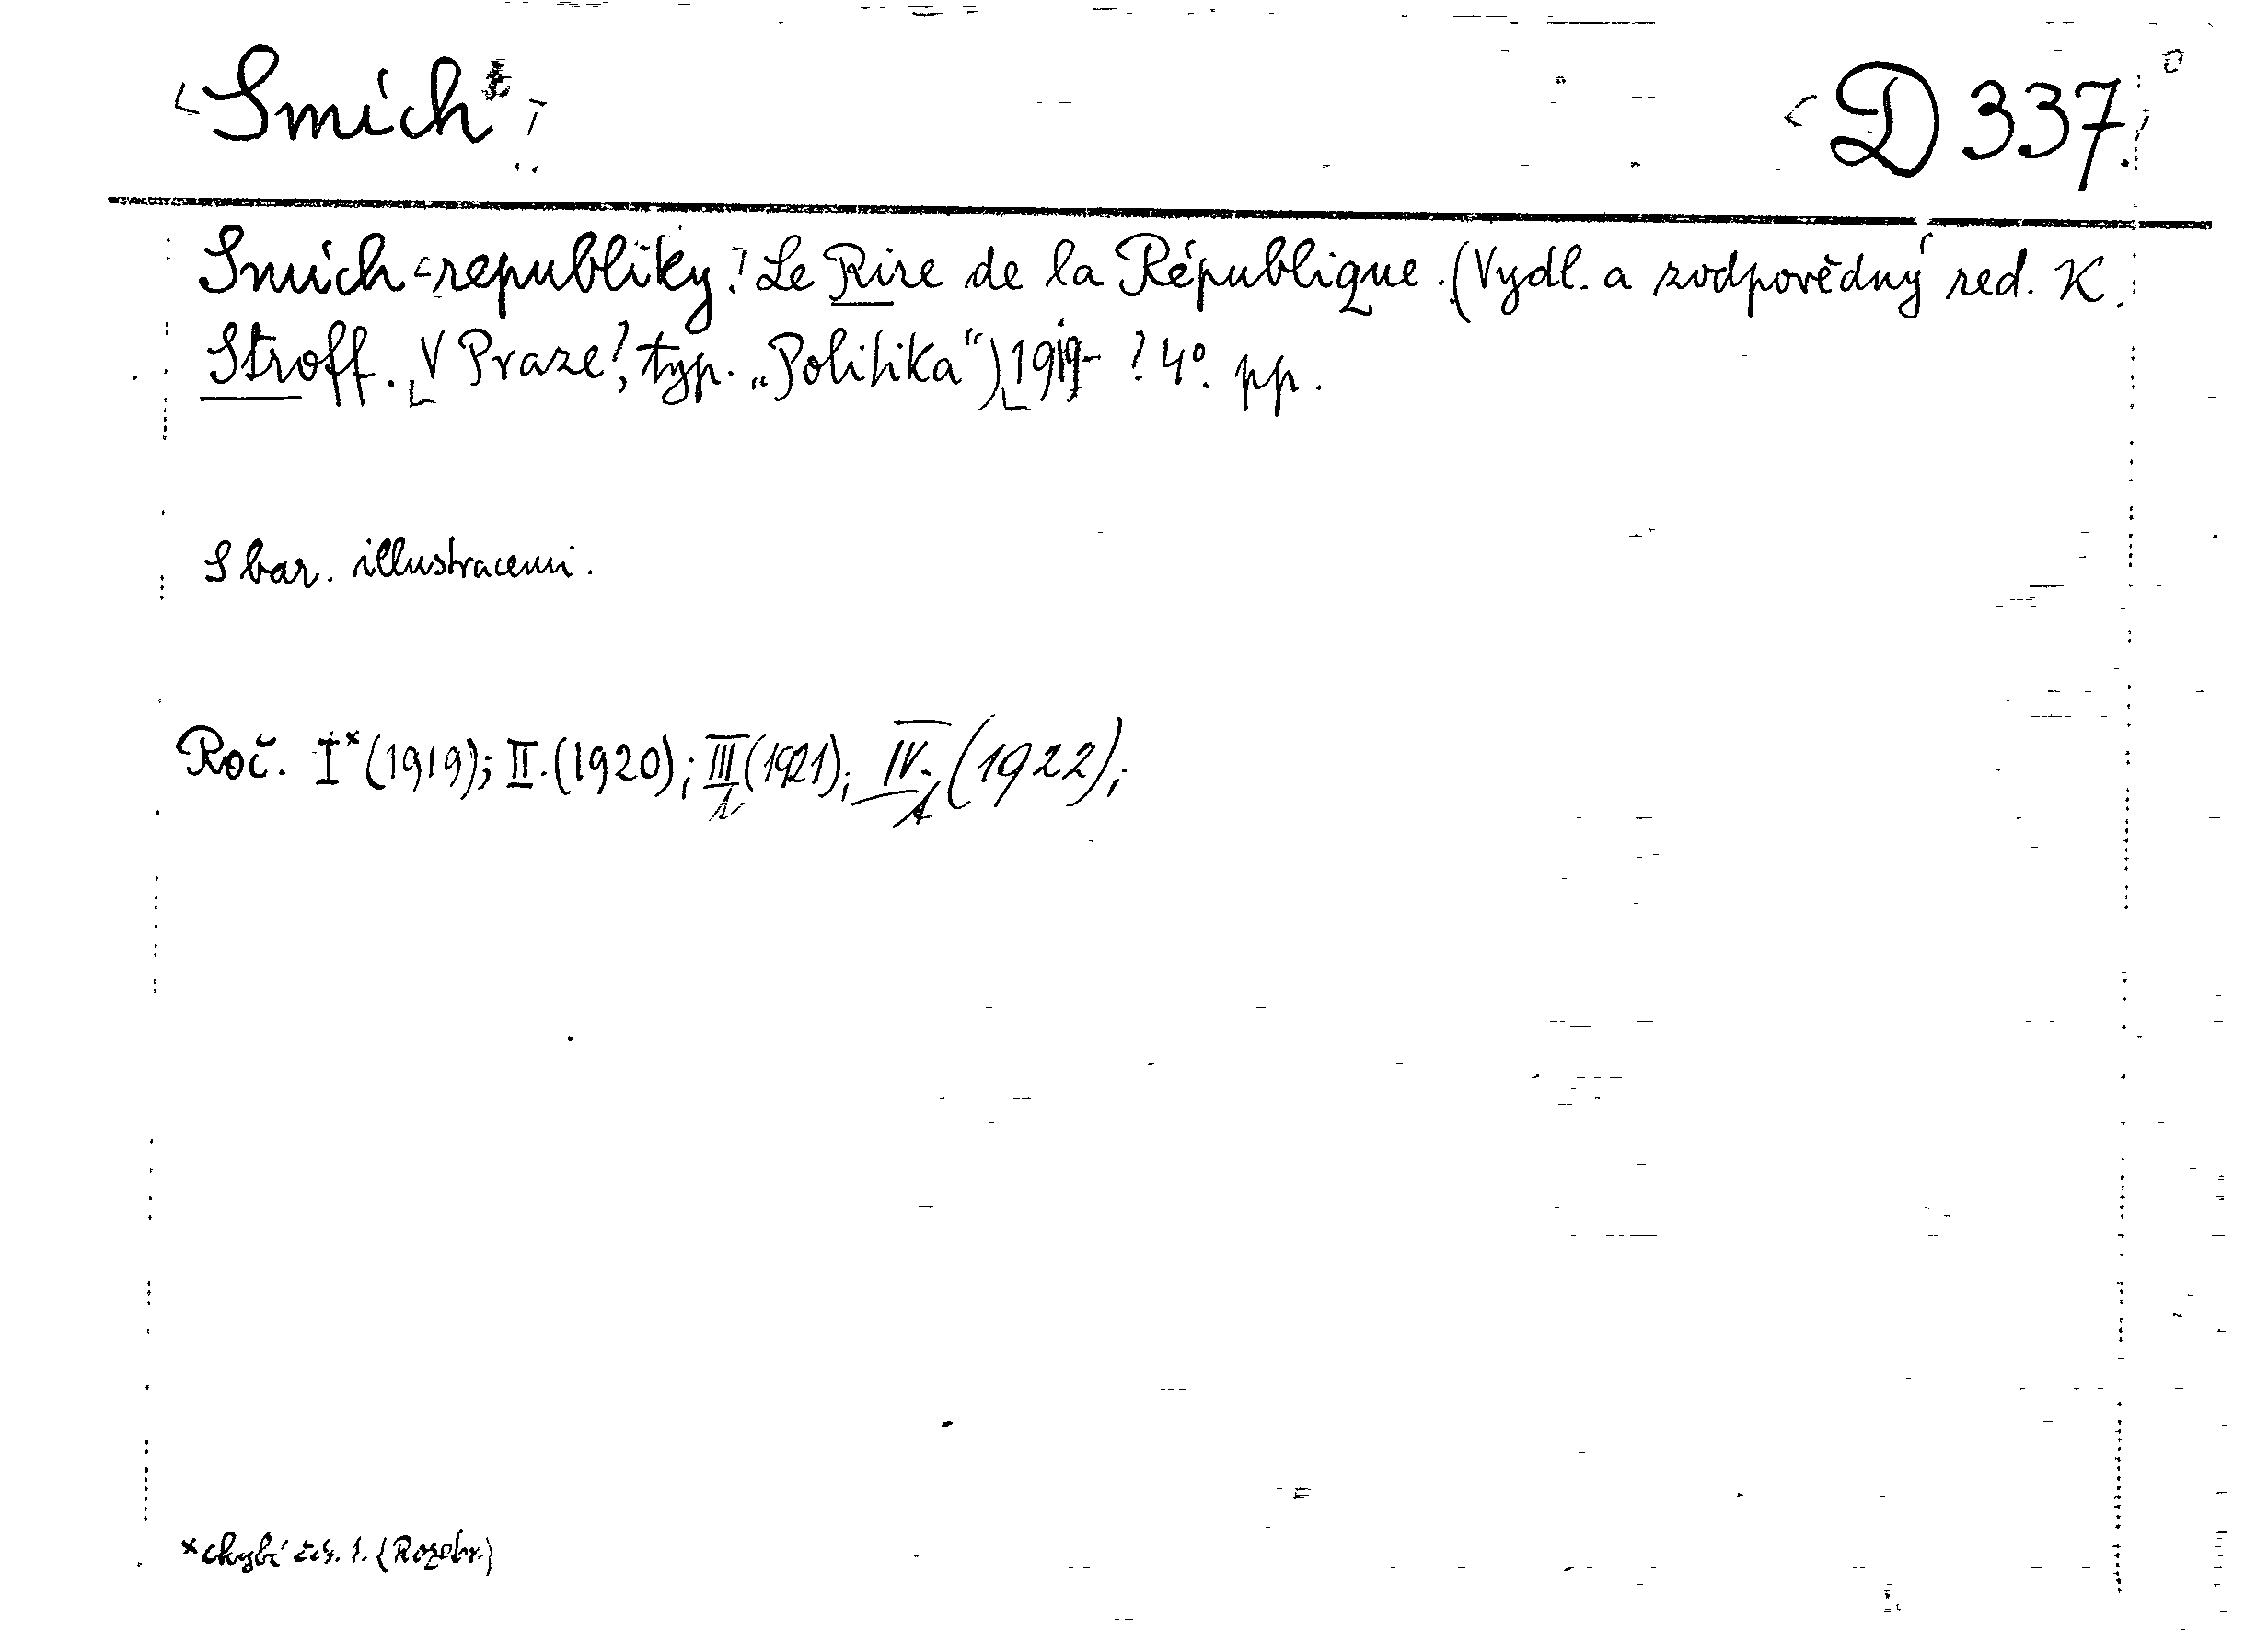 Smích D 337.
Smích republiky! Le Rire de la République. (Vydl. a zodpovědný red. K.
Stroff. V Praze, typ. „Politika“) 1919- ? 4°. pp.
S bar. illustracemi.
Roč. I* (1919); II. (1920); III (1921); IV. (1922);
*chybí čís. 1. (Rozebr.)